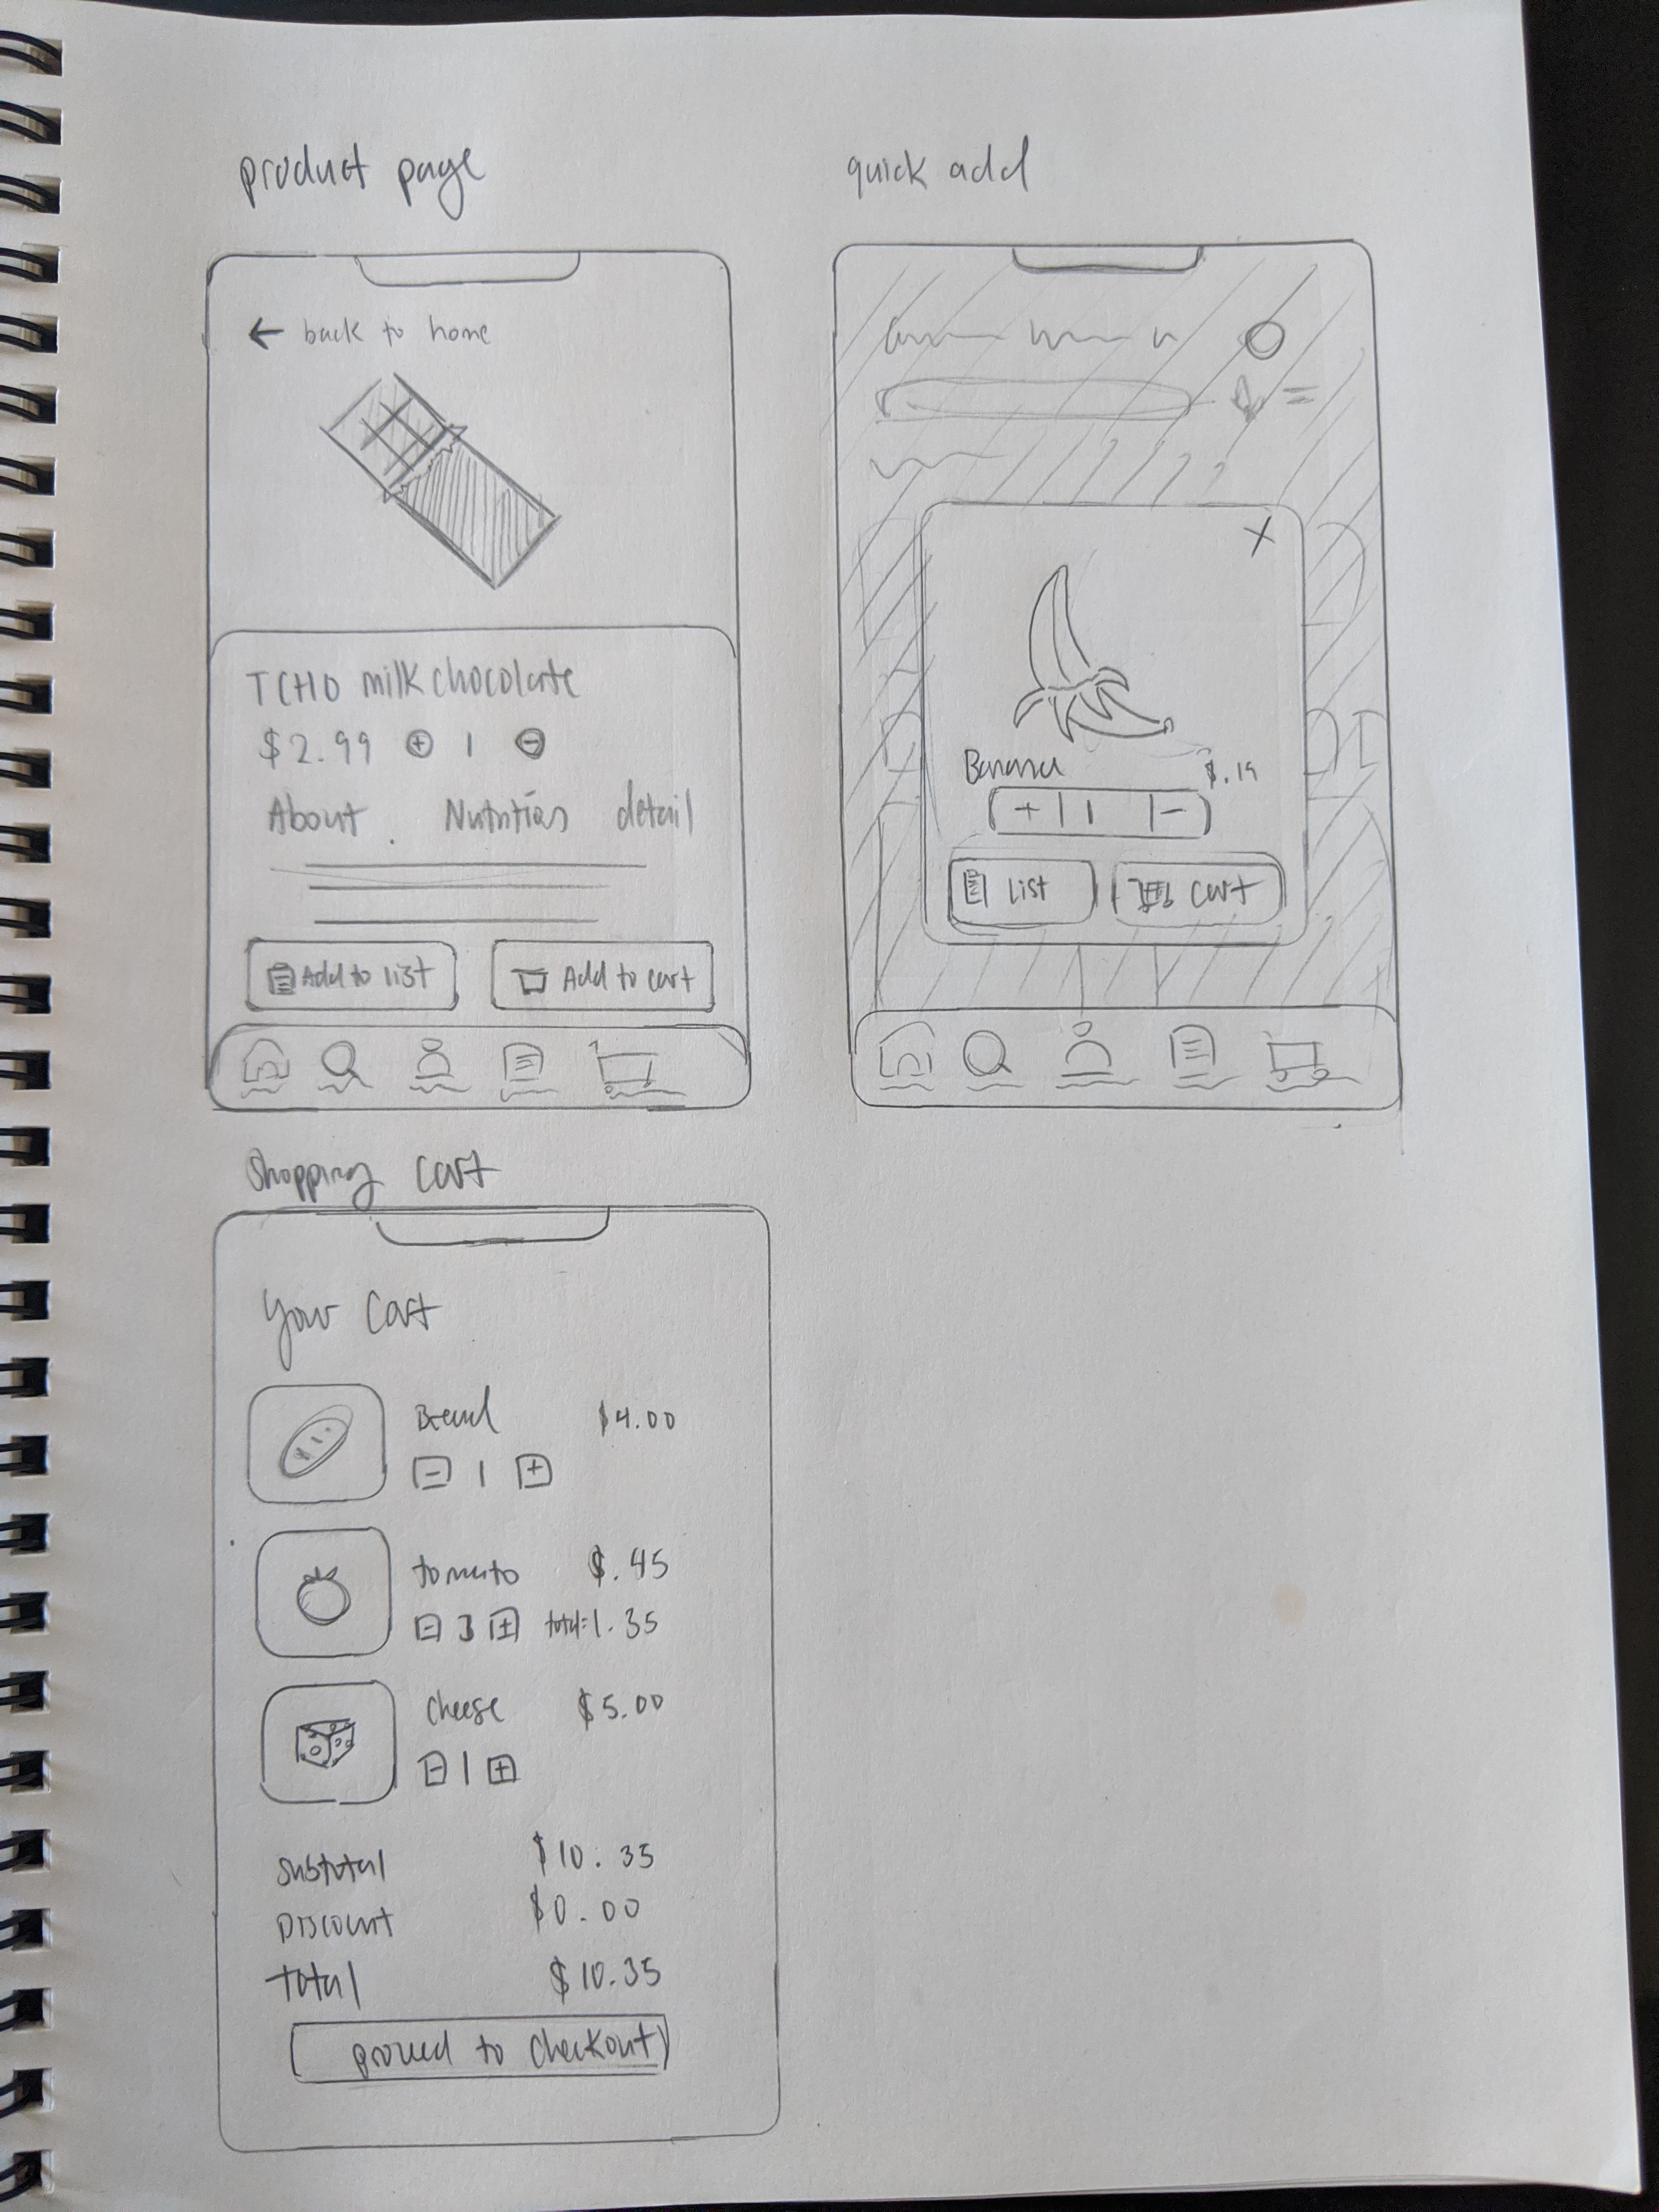 product page
← back to home
TCHO milk chocolate
$2.99 + 1 -
About Nutrition detail
Add to list Add to cart
quick add
X
Banana $.19
+ 1 -
List Cart
Shopping Cart
Your Cart
Bread $4.00
- 1 +
tomato $.45
- 3 + total: 1.35
Cheese $5.00
- 1 +
Subtotal $10.35
Discount $0.00
total $10.35
proceed to checkout